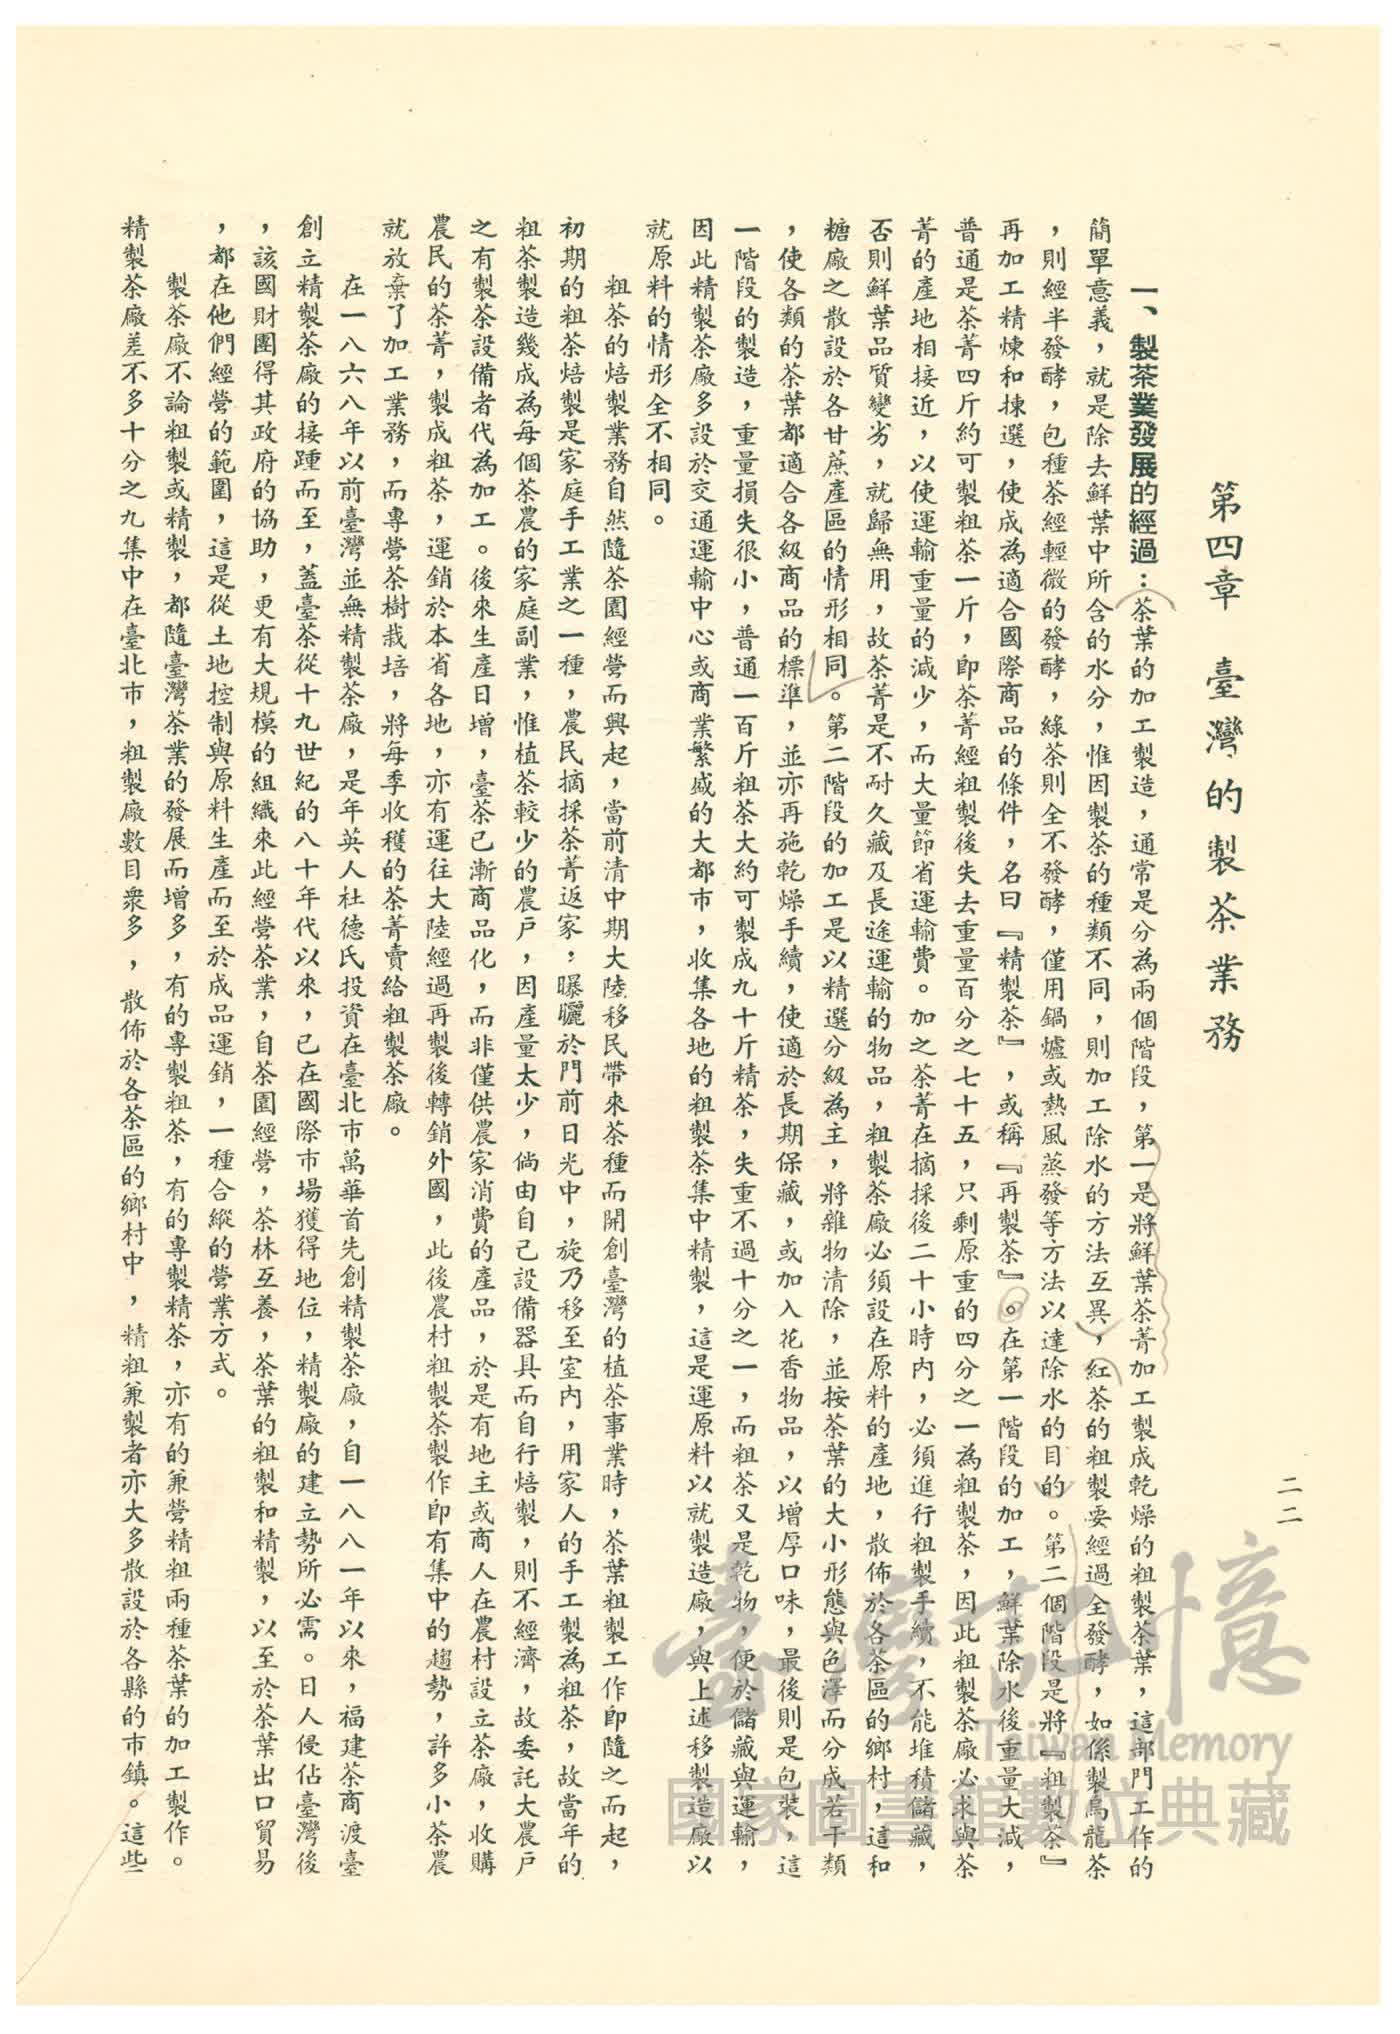 二二
第四章　臺灣的製茶業務
一、製茶業發展的經過：茶葉的加工製造，通常是分為兩個階段，第一是將鮮葉茶菁加工製成乾燥的粗製茶葉，這部門工作的
簡單意義，就是除去鮮葉中所含的水分，惟因製茶的種類不同，則加工除水的方法互異，紅茶的粗製要經過全發酵，如係製烏龍茶
，則經半發酵，包種茶經輕微的發酵，綠茶則全不發酵，僅用鍋爐或熱風蒸發等方法以達除水的目的。第二個階段是將『粗製茶』
再加工精煉和揀選，使成為適合國際商品的條件，名曰『精製茶』，或稱『再製茶』。在第一階段的加工，鮮葉除水後重量大減，
普通是茶菁四斤約可製粗茶一斤，即茶菁經粗製後失去重量百分之七十五，只剩原重的四分之一為粗製茶，因此粗製茶廠必求與茶
菁的產地相接近，以使運輸重量的減少，而大量節省運輸費。加之茶菁在摘採後二十小時內，必須進行粗製手續，不能堆積儲藏，
否則鮮葉品質變劣，就歸無用，故茶菁是不耐久藏及長途運輸的物品，粗製茶廠必須設在原料的產地，散佈於各茶區的鄉村，這和
糖廠之散設於各甘蔗產區的情形相同。第二階段的加工是以精選分級為主，將雜物清除，並按茶葉的大小形態與色澤而分成若干類
，使各類的茶葉都適合各級商品的標準，並亦再施乾燥手續，使適於長期保藏，或加入花香物品，以增厚口味，最後則是包裝，這
一階段的製造，重量損失很小，普通一百斤粗茶大約可製成九十斤精茶，失重不過十分之一，而粗茶又是乾物，便於儲藏與運輸，
因此精製茶廠多設於交通運輸中心或商業繁盛的大都市，收集各地的粗製茶集中精製，這是運原料以就製造廠，與上述移製造廠以
就原料的情形全不相同。
粗茶的焙製業務自然隨茶園經營而興起，當前清中期大陸移民帶來茶種而開創臺灣的植茶事業時，茶葉粗製工作即隨之而起，
初期的粗茶焙製是家庭手工業之一種，農民摘採茶菁返家，曝曬於門前日光中，旋乃移至室內，用家人的手工製為粗茶，故當年的
粗茶製造幾成為每個茶農的家庭副業，惟植茶較少的農戶，因產量太少，倘由自己設備器具而自行焙製，則不經濟，故委託大農戶
之有製茶設備者代為加工。後來生產日增，臺茶已漸商品化，而非僅供農家消費的產品，於是有地主或商人在農村設立茶廠，收購
農民的茶菁，製成粗茶，運銷於本省各地，亦有運往大陸經過再製後轉銷外國，此後農村粗製茶製作即有集中的趨勢，許多小茶農
就放棄了加工業務，而專營茶樹栽培，將每季收穫的茶菁賣給粗製茶廠。
在一八六八年以前臺灣並無精製茶廠，是年英人杜德氏投資在臺北市萬華首先創精製茶廠，自一八八一年以來，福建茶商渡臺
創立精製茶廠的接踵而至，蓋臺茶從十九世紀的八十年代以來，已在國際市場獲得地位，精製廠的建立勢所必需。日人侵佔臺灣後
，該國財團得其政府的協助，更有大規模的組織來此經營茶業，自茶園經營，茶林互養，茶葉的粗製和精製，以至於茶葉出口貿易
，都在他們經營的範圍，這是從土地控制與原料生產而至於成品運銷，一種合縱的營業方式。
製茶廠不論粗製或精製，都隨臺灣茶業的發展而增多，有的專製粗茶，有的專製精茶，亦有的兼營精粗兩種茶葉的加工製作。
精製茶廠差不多十分之九集中在臺北市，粗製廠數目眾多，散佈於各茶區的鄉村中，精粗兼製者亦大多散設於各縣的市鎮。這些
臺灣記憶
Taiwan Memory
國家圖書館數位典藏